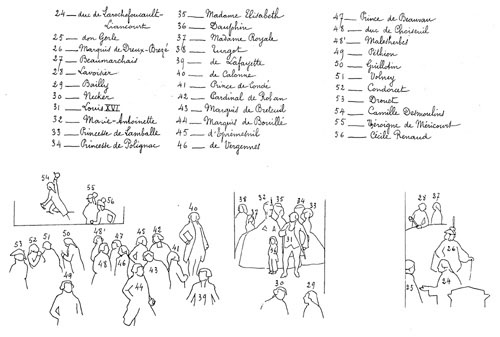 24 — duc de Larochefoucault-
Liancourt
25 — don Gerle
26 — Marquis de Dreux-Brezé
27 — Beaumarchais
28 — Lavoisier
29 — Bailly
30 — Necker
31 — Louis XVI
32 — Marie-Antoinette
33 — Princesse de Lamballe
34 — Princesse de Polignac
35 — Madame Elisabeth
36 — Dauphin
37 — Madame Royale
38 — Turgot
39 — de Lafayette
40 — de Calonne
41 — Prince de Condé
42 — Cardinal de Rohan
43 — Marquis de Breteuil
44 — Marquis de Bouillé
45 — d'Epremesnil
46 — de Vergennes
47 — Prince de Beauvau
48 — duc de Choiseuil
48' — Malesherbes
49 — Péthion
50 — Guillotin
51 — Volney
52 — Condorcet
53 — Drouet
54 — Camille Desmoulins
55 — Théroigne de Méricourt
56 — Cécile Renaud
54 55 56
53 52 51 50 48' 45 42 40
48 47 46 43 41
49 44 39
38 37 32 35 34 33
36 31
30 29
28 27
26
25 24